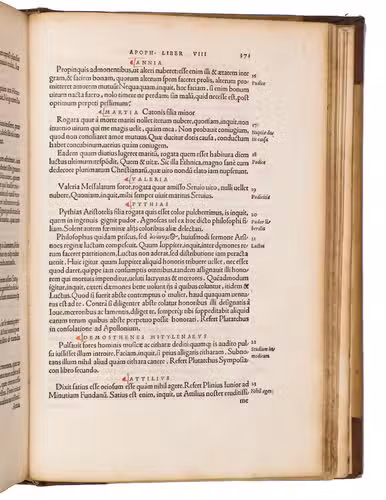 APOPH. LIBER VIII 371
ANNIA
Propinquis admonentibus, ut alteri nuberet: esse enim illi & ætatem int
egram, & faciem bonam, quorum alterum spem faceret prolis, alterum pro
mitteret amorem mutuũ: Nequaquam, inquit, hoc faciam. si enim bonum
uirum nacta fuero, nolo timere ne perdam: sin malũ, quid necesse est, post
optimum perpeti pessimum?
Pudice
MARTIA Catonis filia minor
Rogata quur à morte mariti nollet iterum nubere, quoniam, inquit, non
inuenio uirum qui me magis uelit, quàm mea. Non probauit coniugium,
quod non conciliaret amor mutuus. Quæ ducitur dotis causa, conductum
habet concubinum, uerius quàm coniugem.
Eadem quum diutius lugeret maritũ, rogata quem esset habitura diem
luctus ultimum, respõdit, Quem & uitæ. Sic illa Ethnica, magno sanè cum
dedecore plurimarum Christianarũ, quæ uiro nondũ elato iam nupserunt.
18
Pudicè
VALERIA
Valeria Messalarum soror, rogata quur amisso Seruio uiro, nulli uellet
nubere, Quoniam, inquit, mihi semper uiuit maritus Seruius.
19
Pudicitia
PYTHIAS
Pythias Aristotelis filia rogata quis esset color pulcherrimus, is inquit,
quem in ingenuis gignit pudor. Agnosceres uel ex hoc dicto philosophi fi
liam. Solent autem fœminæ alijs coloribus aliæ delectari.
20
Philosophus quidam priscus, huiusmodi sermone Arsi-
noes reginæ luctum compescuit. Quum Iuppiter, inquit, inter dæmones re
rum faceret partitionem, Luctus non aderat, sed distributione iam peracta
uenit. Huic igitur quum Iuppiter aliquid honoris tribuere uellet, nec esset
quod daret, quippe iam consumptis omnibus, tandem assignauit illi hono-
rem qui mortuis impenditur, pusta lacrymas & mœrores. Quemadmodum
igitur, inquit, cæteri dæmones bene uolunt his à quibus coluntur, idem &
Luctus. Quod si fuerit abs te contemptus ò mulier, haud quaquam uenta-
rus est ad te. Contrà si diligenter abs te colatur honoribus illi designatis à
Ioue, mœroribus ac lamentis, diliget te, semperq́ tibi suppeditabit aliquid
earum rerum quibus abs te perpetuò possit honorari. Refert Plutarchus
in consolatione ad Apollonium.
21
Luctus
DEMOSTHENES MITYLENAEVS
Pulsauit fores hominis musicæ ac citharæ dediti: quumq́ is audito pul-
su iussisset illum introire, Faciam, inquit, si prius alligaris citharam. Subno-
tans illum nihil aliud quàm citharam canere. Refert Plutarchus Symposia-
con libro secundo.
ATTILIVS
Dixit satius esse ociosum esse quàm nihil agere. Refert Plinius Iunior ad
Minutium Fundanũ. Satius est enim, inquit, ut Attilius noster eruditissi-
23
Nihil agere
me